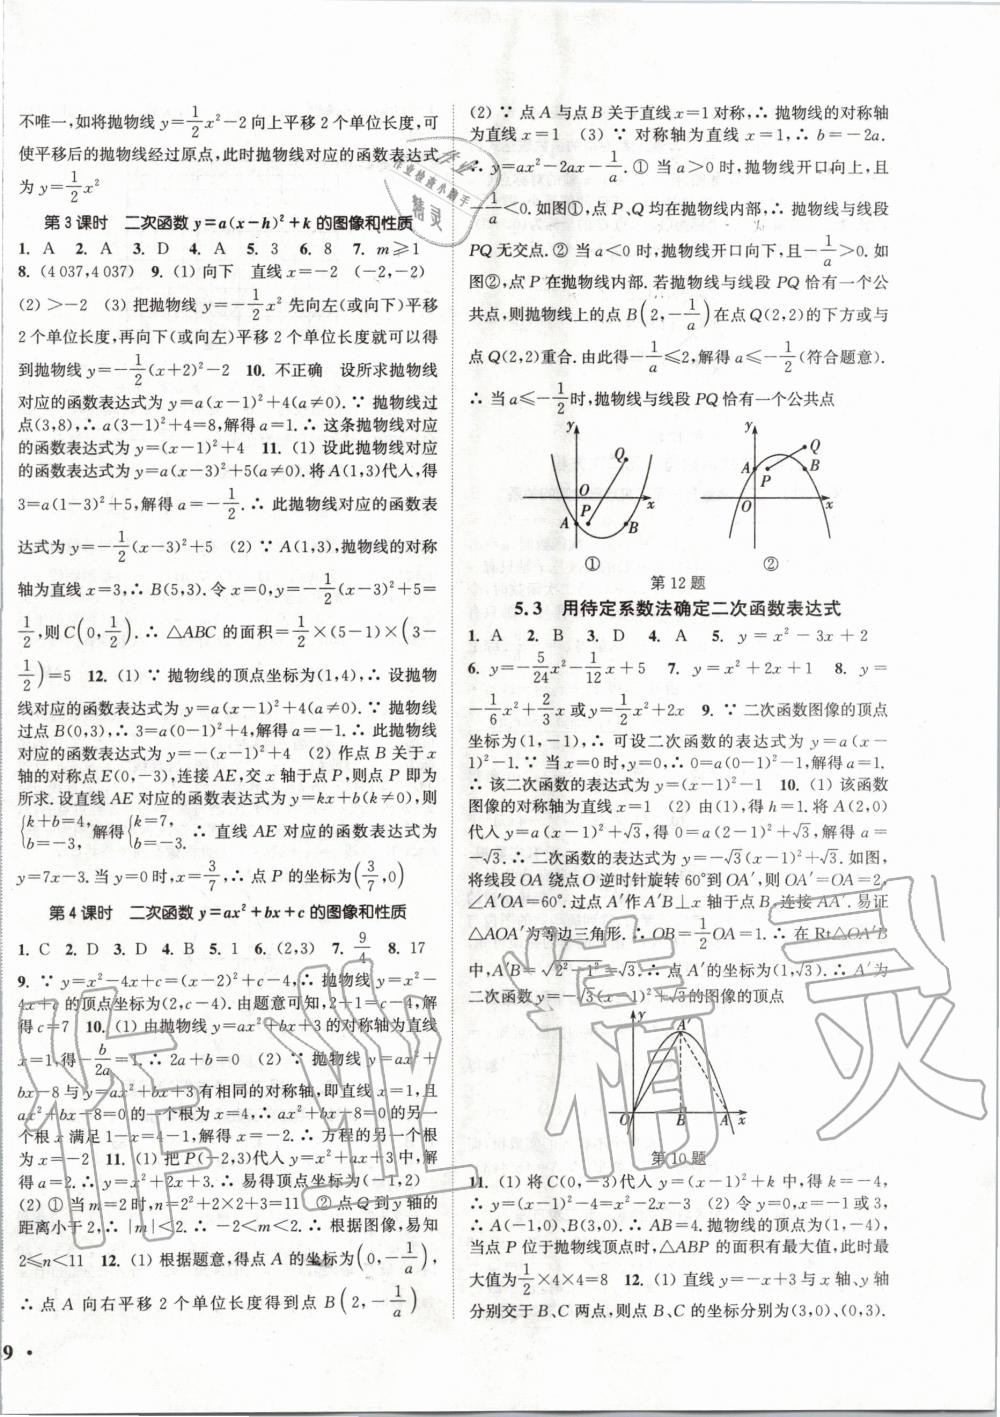 不唯一,如将抛物线 y=1/2x²-2 向上平移 2 个单位长度,可
使平移后的抛物线经过原点,此时抛物线对应的函数表达式
为 y=1/2x²
第 3 课时 二次函数 y=a(x-h)²+k 的图像和性质
1. A 2. A 3. D 4. A 5. 3 6. 8 7. m≥1
8. (4 037,4 037) 9. (1) 向下 直线 x=-2 (-2,-2)
(2) >-2 (3) 把抛物线 y=-1/2x² 先向左(或向下)平移
2 个单位长度,再向下(或向左)平移 2 个单位长度就可以得
到抛物线 y=-1/2(x+2)²-2 10. 不正确 设所求抛物线
对应的函数表达式为 y=a(x-1)²+4(a≠0).∵ 抛物线过
点(3,8),∴ a(3-1)²+4=8,解得 a=1.∴ 这条抛物线对应
的函数表达式为 y=(x-1)²+4 11. (1) 设此抛物线对应
的函数表达式为 y=a(x-3)²+5(a≠0).将 A(1,3)代入,得
3=a(1-3)²+5,解得 a=-1/2.∴ 此抛物线对应的函数表
达式为 y=-1/2(x-3)²+5 (2) ∵ A(1,3),抛物线的对称
轴为直线 x=3,∴ B(5,3).令 x=0,y=-1/2(x-3)²+5=
1/2,则 C(0,1/2).∴ △ABC 的面积=1/2×(5-1)×(3-
1/2)=5 12. (1) ∵ 抛物线的顶点坐标为(1,4),∴ 设抛物
线对应的函数表达式为 y=a(x-1)²+4(a≠0).∵ 抛物线
过点 B(0,3),∴ 3=a(0-1)²+4,解得 a=-1.∴ 此抛物线
对应的函数表达式为 y=-(x-1)²+4 (2) 作点 B 关于 x
轴的对称点 E(0,-3),连接 AE,交 x 轴于点 P,则点 P 即为
所求.设直线 AE 对应的函数表达式为 y=kx+b(k≠0),则
{k+b=4, b=-3, 解得{k=7, b=-3. ∴ 直线 AE 对应的函数表达式为
y=7x-3.当 y=0 时,x=3/7,∴ 点 P 的坐标为(3/7,0)
第 4 课时 二次函数 y=ax²+bx+c 的图像和性质
1. C 2. D 3. D 4. B 5. 1 6. (2,3) 7. 9/4 8. 17
9. ∵ y=x²-4x+c=(x-2)²+c-4,∴ 抛物线 y=x²-
4x+c 的顶点坐标为(2,c-4).由题意可知,2+1=c-4,解
得 c=7 10. (1) 由抛物线 y=ax²+bx+3 的对称轴为直线
x=1,得-b/2a=1.∴ 2a+b=0 (2) ∵ 抛物线 y=ax²+
bx-8 与 y=ax²+bx+3 有相同的对称轴,即直线 x=1,且
ax²+bx-8=0 的一个根为 x=4,∴ ax²+bx-8=0 的另一
个根 x 满足 1-x=4-1,解得 x=-2.∴ 方程的另一个根
为 x=-2 11. (1) 把 P(-2,3)代入 y=x²+ax+3 中,解
得 a=2.∴ y=x²+2x+3.∴ 易得顶点坐标为(-1,2)
(2) ① 当 m=2 时,n=2²+2×2+3=11 ② 点 Q 到 y 轴的
距离小于 2,∴ |m|<2.∴ -2<m<2.∴ 根据图像,易知
2≤n<11 12. (1) 根据题意,得点 A 的坐标为(0,-1/a),
∴ 点 A 向右平移 2 个单位长度得到点 B(2,-1/a)
9 •
(2) ∵ 点 A 与点 B 关于直线 x=1 对称,∴ 抛物线的对称轴
为直线 x=1 (3) ∵ 对称轴为直线 x=1,∴ b=-2a.
∴ y=ax²-2ax-1/a.① 当 a>0 时,抛物线开口向上,且
-1/a<0.如图①,点 P、Q 均在抛物线内部,∴ 抛物线与线段
PQ 无交点.② 当 a<0 时,抛物线开口向下,且-1/a>0.如
图②,点 P 在抛物线内部.若抛物线与线段 PQ 恰有一个公
共点,则抛物线上的点 B(2,-1/a)在点 Q(2,2)的下方或与
点 Q(2,2)重合.由此得-1/a≤2,解得 a≤-1/2(符合题意).
∴ 当 a≤-1/2时,抛物线与线段 PQ 恰有一个公共点
y Q O P A B x
①
y Q A B P O x
②
第 12 题
5.3 用待定系数法确定二次函数表达式
1. A 2. B 3. D 4. A 5. y=x²-3x+2
6. y=-5/24x²-1/12x+5 7. y=x²+2x+1 8. y=
-1/6x²+2/3x 或 y=1/2x²+2x 9. ∵ 二次函数图像的顶点
坐标为(1,-1),∴ 可设二次函数的表达式为 y=a(x-
1)²-1.∵ 当 x=0 时,y=0,∴ 0=a(0-1)²-1,解得 a=1.
∴ 该二次函数的表达式为 y=(x-1)²-1 10. (1) 该函数
图像的对称轴为直线 x=1 (2) 由(1),得 h=1.将 A(2,0)
代入 y=a(x-1)²+√3,得 0=a(2-1)²+√3,解得 a=
-√3.∴ 二次函数的表达式为 y=-√3(x-1)²+√3.如图,
将线段 OA 绕点 O 逆时针旋转 60°到 OA′,则 OA′=OA=2,
∠A′OA=60°.过点 A′作 A′B⊥x 轴于点 B,连接 AA′.易证
△AOA′为等边三角形.∴ OB=1/2OA=1.∴ 在 Rt△OA′B
中,A′B=√2²-1²=√3.∴ 点 A′的坐标为(1,√3).∴ A′为
二次函数 y=-√3(x-1)²+√3的图像的顶点
y A′ O B A x
第 10 题
11. (1) 将 C(0,-3)代入 y=(x-1)²+k 中,得 k=-4,
∴ y=(x-1)²-4=x²-2x-3 (2) 令 y=0,得 x=-1 或 3.
∴ A(-1,0),B(3,0).∴ AB=4.抛物线的顶点为(1,-4),
当点 P 位于抛物线顶点时,△ABP 的面积有最大值,此时最
大值为1/2×4×4=8 12. (1) 直线 y=-x+3 与 x 轴、y 轴
分别交于 B、C 两点,则点 B、C 的坐标分别为(3,0)、(0,3).
作业检查小助手
精灵
作业精灵